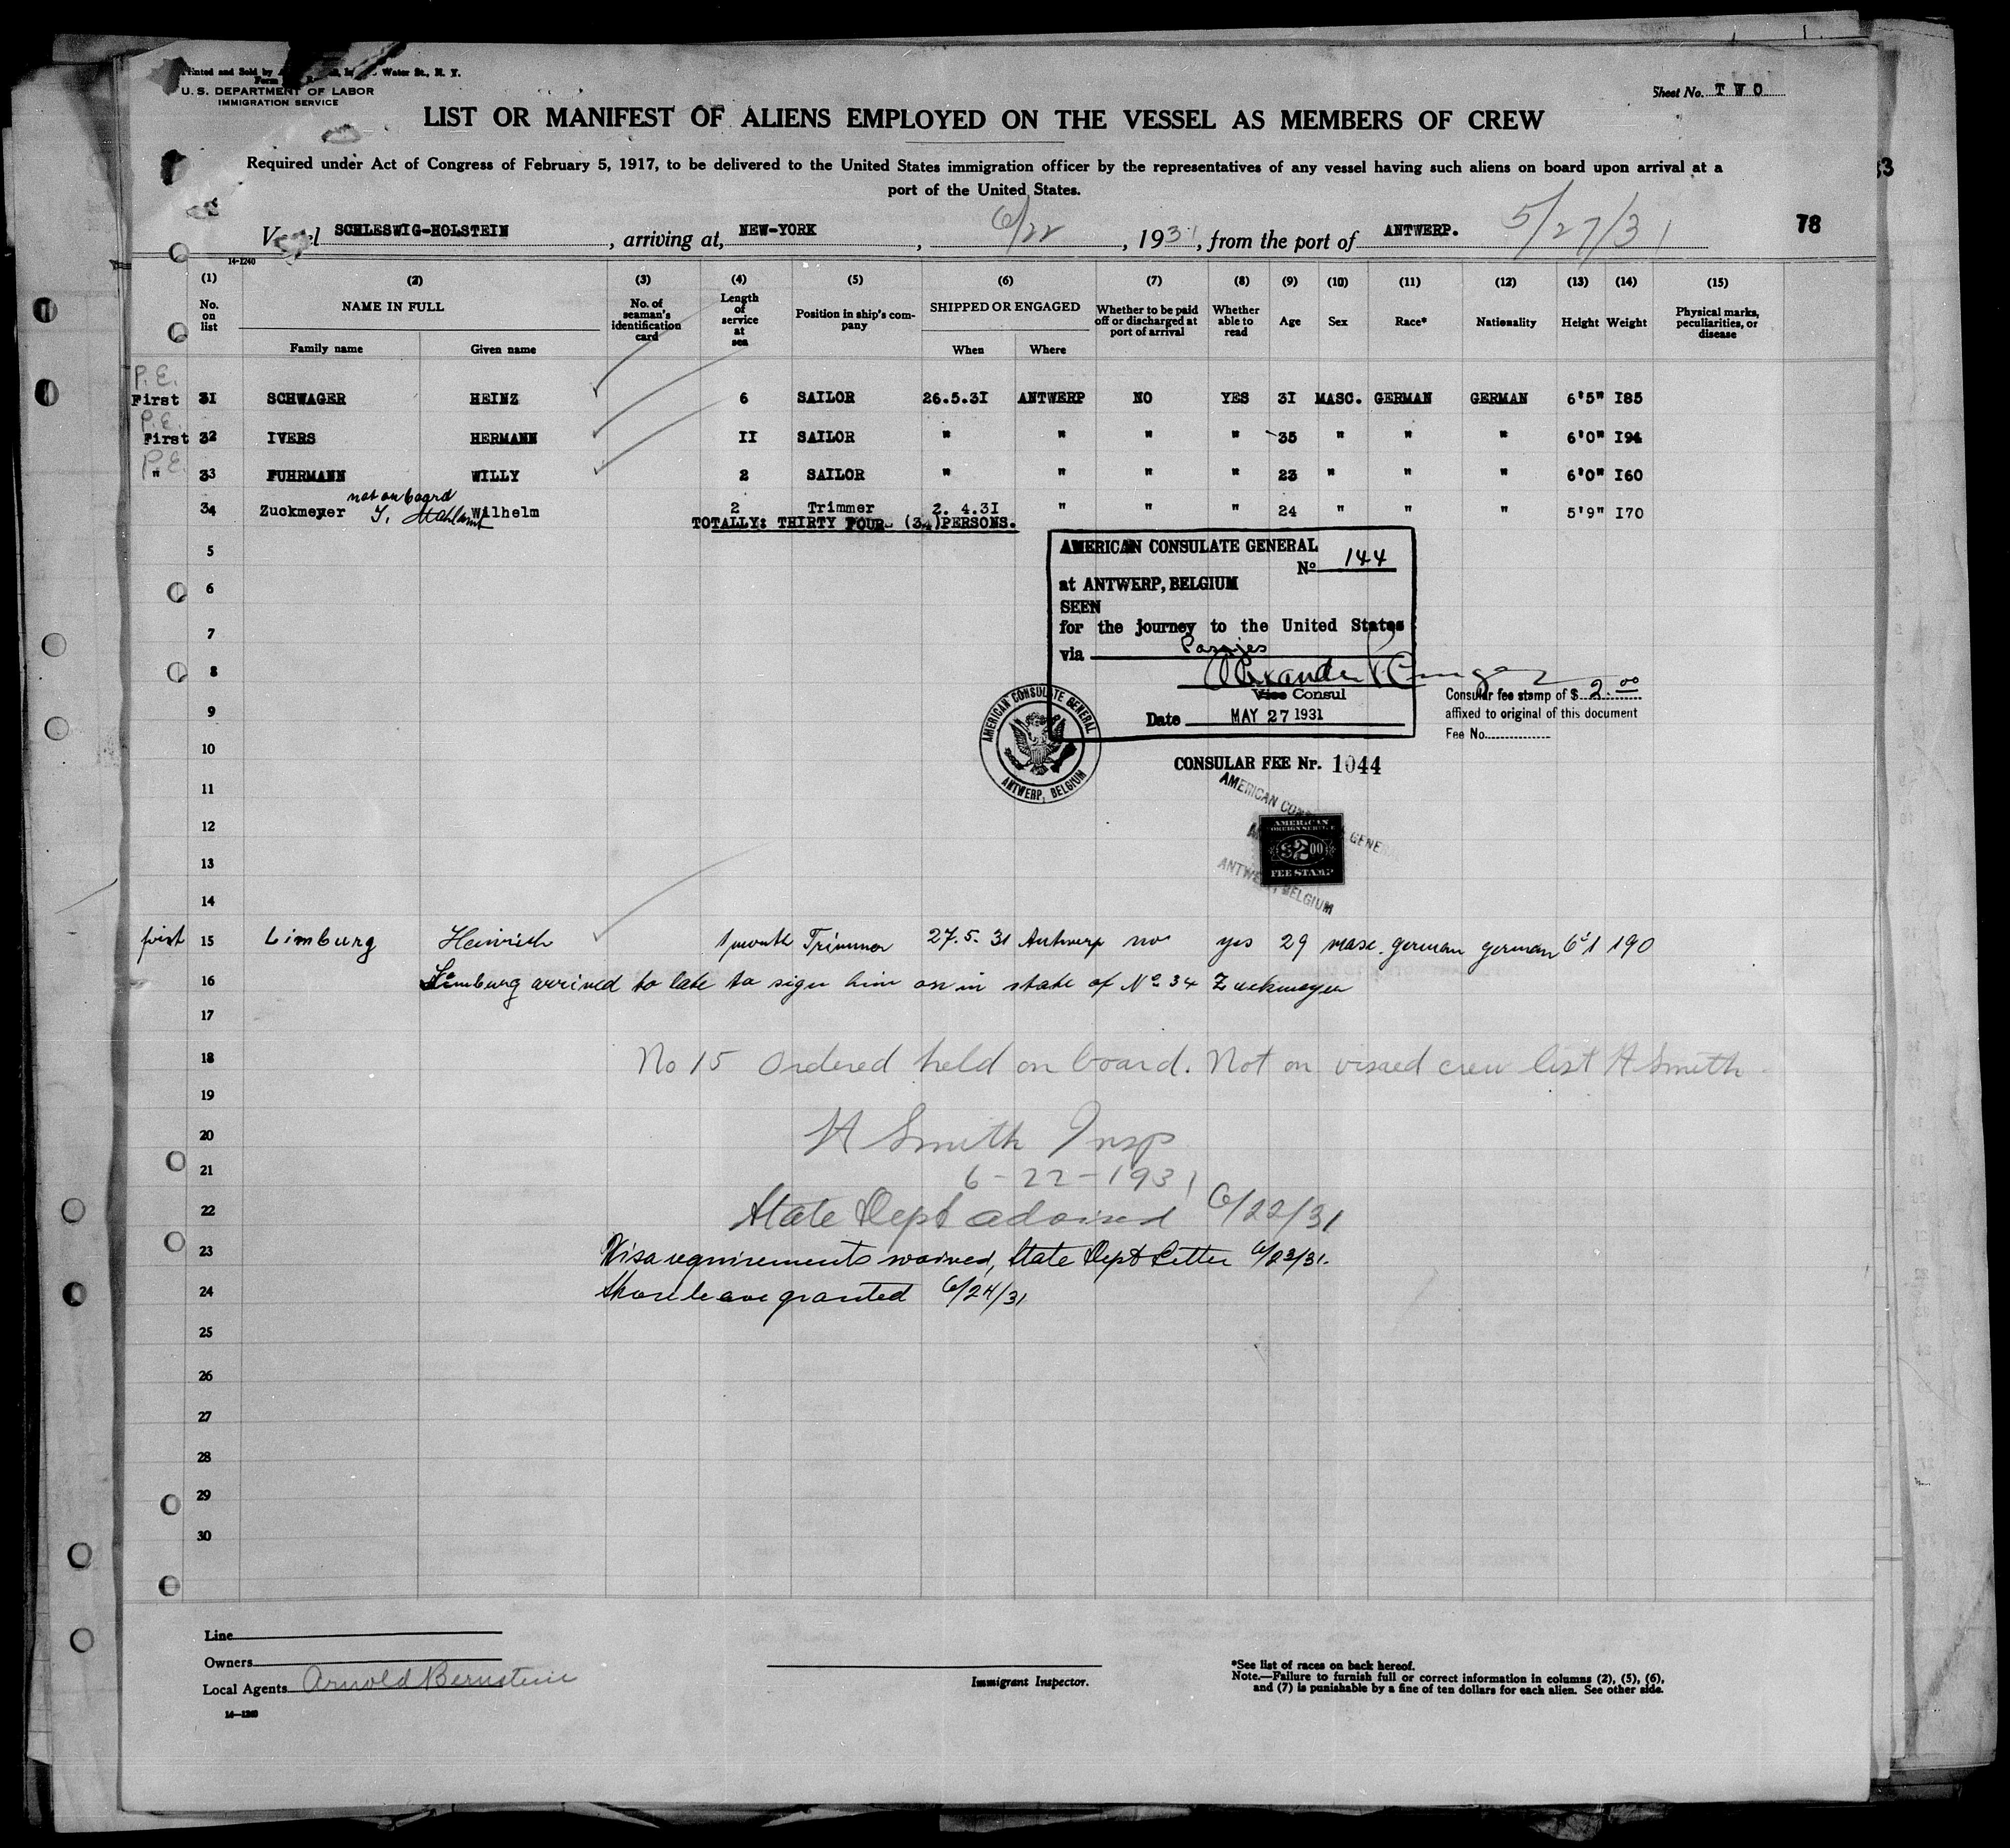 Printed and Sold by Water St., N. Y.
Form
U. S. DEPARTMENT OF LABOR
IMMIGRATION SERVICE
Sheet No. TWO
LIST OR MANIFEST OF ALIENS EMPLOYED ON THE VESSEL AS MEMBERS OF CREW
Required under Act of Congress of February 5, 1917, to be delivered to the United States immigration officer by the representatives of any vessel having such aliens on board upon arrival at a
port of the United States.
Vessel SCHLESWIG-HOLSTEIN, arriving at, NEW-YORK, 6/22, 1931, from the port of ANTWERP. 5/27/31
78
14-1240
(1) (2) (3) (4) (5) (6) (7) (8) (9) (10) (11) (12) (13) (14) (15)
No. on list NAME IN FULL No. of seaman's identification card Length of service at sea Position in ship's company SHIPPED OR ENGAGED Whether to be paid off or discharged at port of arrival Whether able to read Age Sex Race* Nationality Height Weight Physical marks, peculiarities, or disease
Family name Given name When Where
P.E.
First 31 SCHWAGER HEINZ 6 SAILOR 26.5.31 ANTWERP NO YES 31 MASC. GERMAN GERMAN 6'5" 185
P.E.
First 32 IVERS HERMANN II SAILOR " " " " 35 " " " 6'0" 194
P.E.
" 33 FUHRMANN WILLY 2 SAILOR " " " " 23 " " " 6'0" 160
not on board
34 Zuckmeyer Wilhelm 2 Trimmer 2. 4.31 " " " 24 " " " 5'9" 170
TOTALLY: THIRTY FOUR (34) PERSONS.
5
AMERICAN CONSULATE GENERAL
No 144
at ANTWERP, BELGIUM
6
SEEN
for the journey to the United States
7
via Pasajes
8
Vice Consul
Consular fee stamp of $ 2.00
affixed to original of this document
Fee No.
9
Date MAY 27 1931
AMERICAN CONSULATE GENERAL
ANTWERP, BELGIUM
10
CONSULAR FEE Nr. 1044
11
AMERICAN GENERAL
12
AMERICAN
FOREIGN SERVICE
$2.00
FEE STAMP
13
ANTWERP, BELGIUM
14
first 15 Limburg Heinrich 1 month Trimmer 27.5.31 Antwerp no yes 29 masc. german german 6'1 190
16 Limburg arrived to late to sign him on in state of No 34 Zuckmeyer
17
18 No 15 ordered held on board. Not on visaed crew list H Smith
19
20 H Smith Insp
21 6-22-1931
22 State Dept advised 6/22/31
23 Visa requirements waived, State Dept Letter 6/23/31.
24 Shore leave granted 6/24/31
25
26
27
28
29
30
Line
Owners
Local Agents Arnold Bernstein
14-1240
Immigrant Inspector.
*See list of races on back hereof.
Note.—Failure to furnish full or correct information in columns (2), (5), (6),
and (7) is punishable by a fine of ten dollars for each alien. See other side.